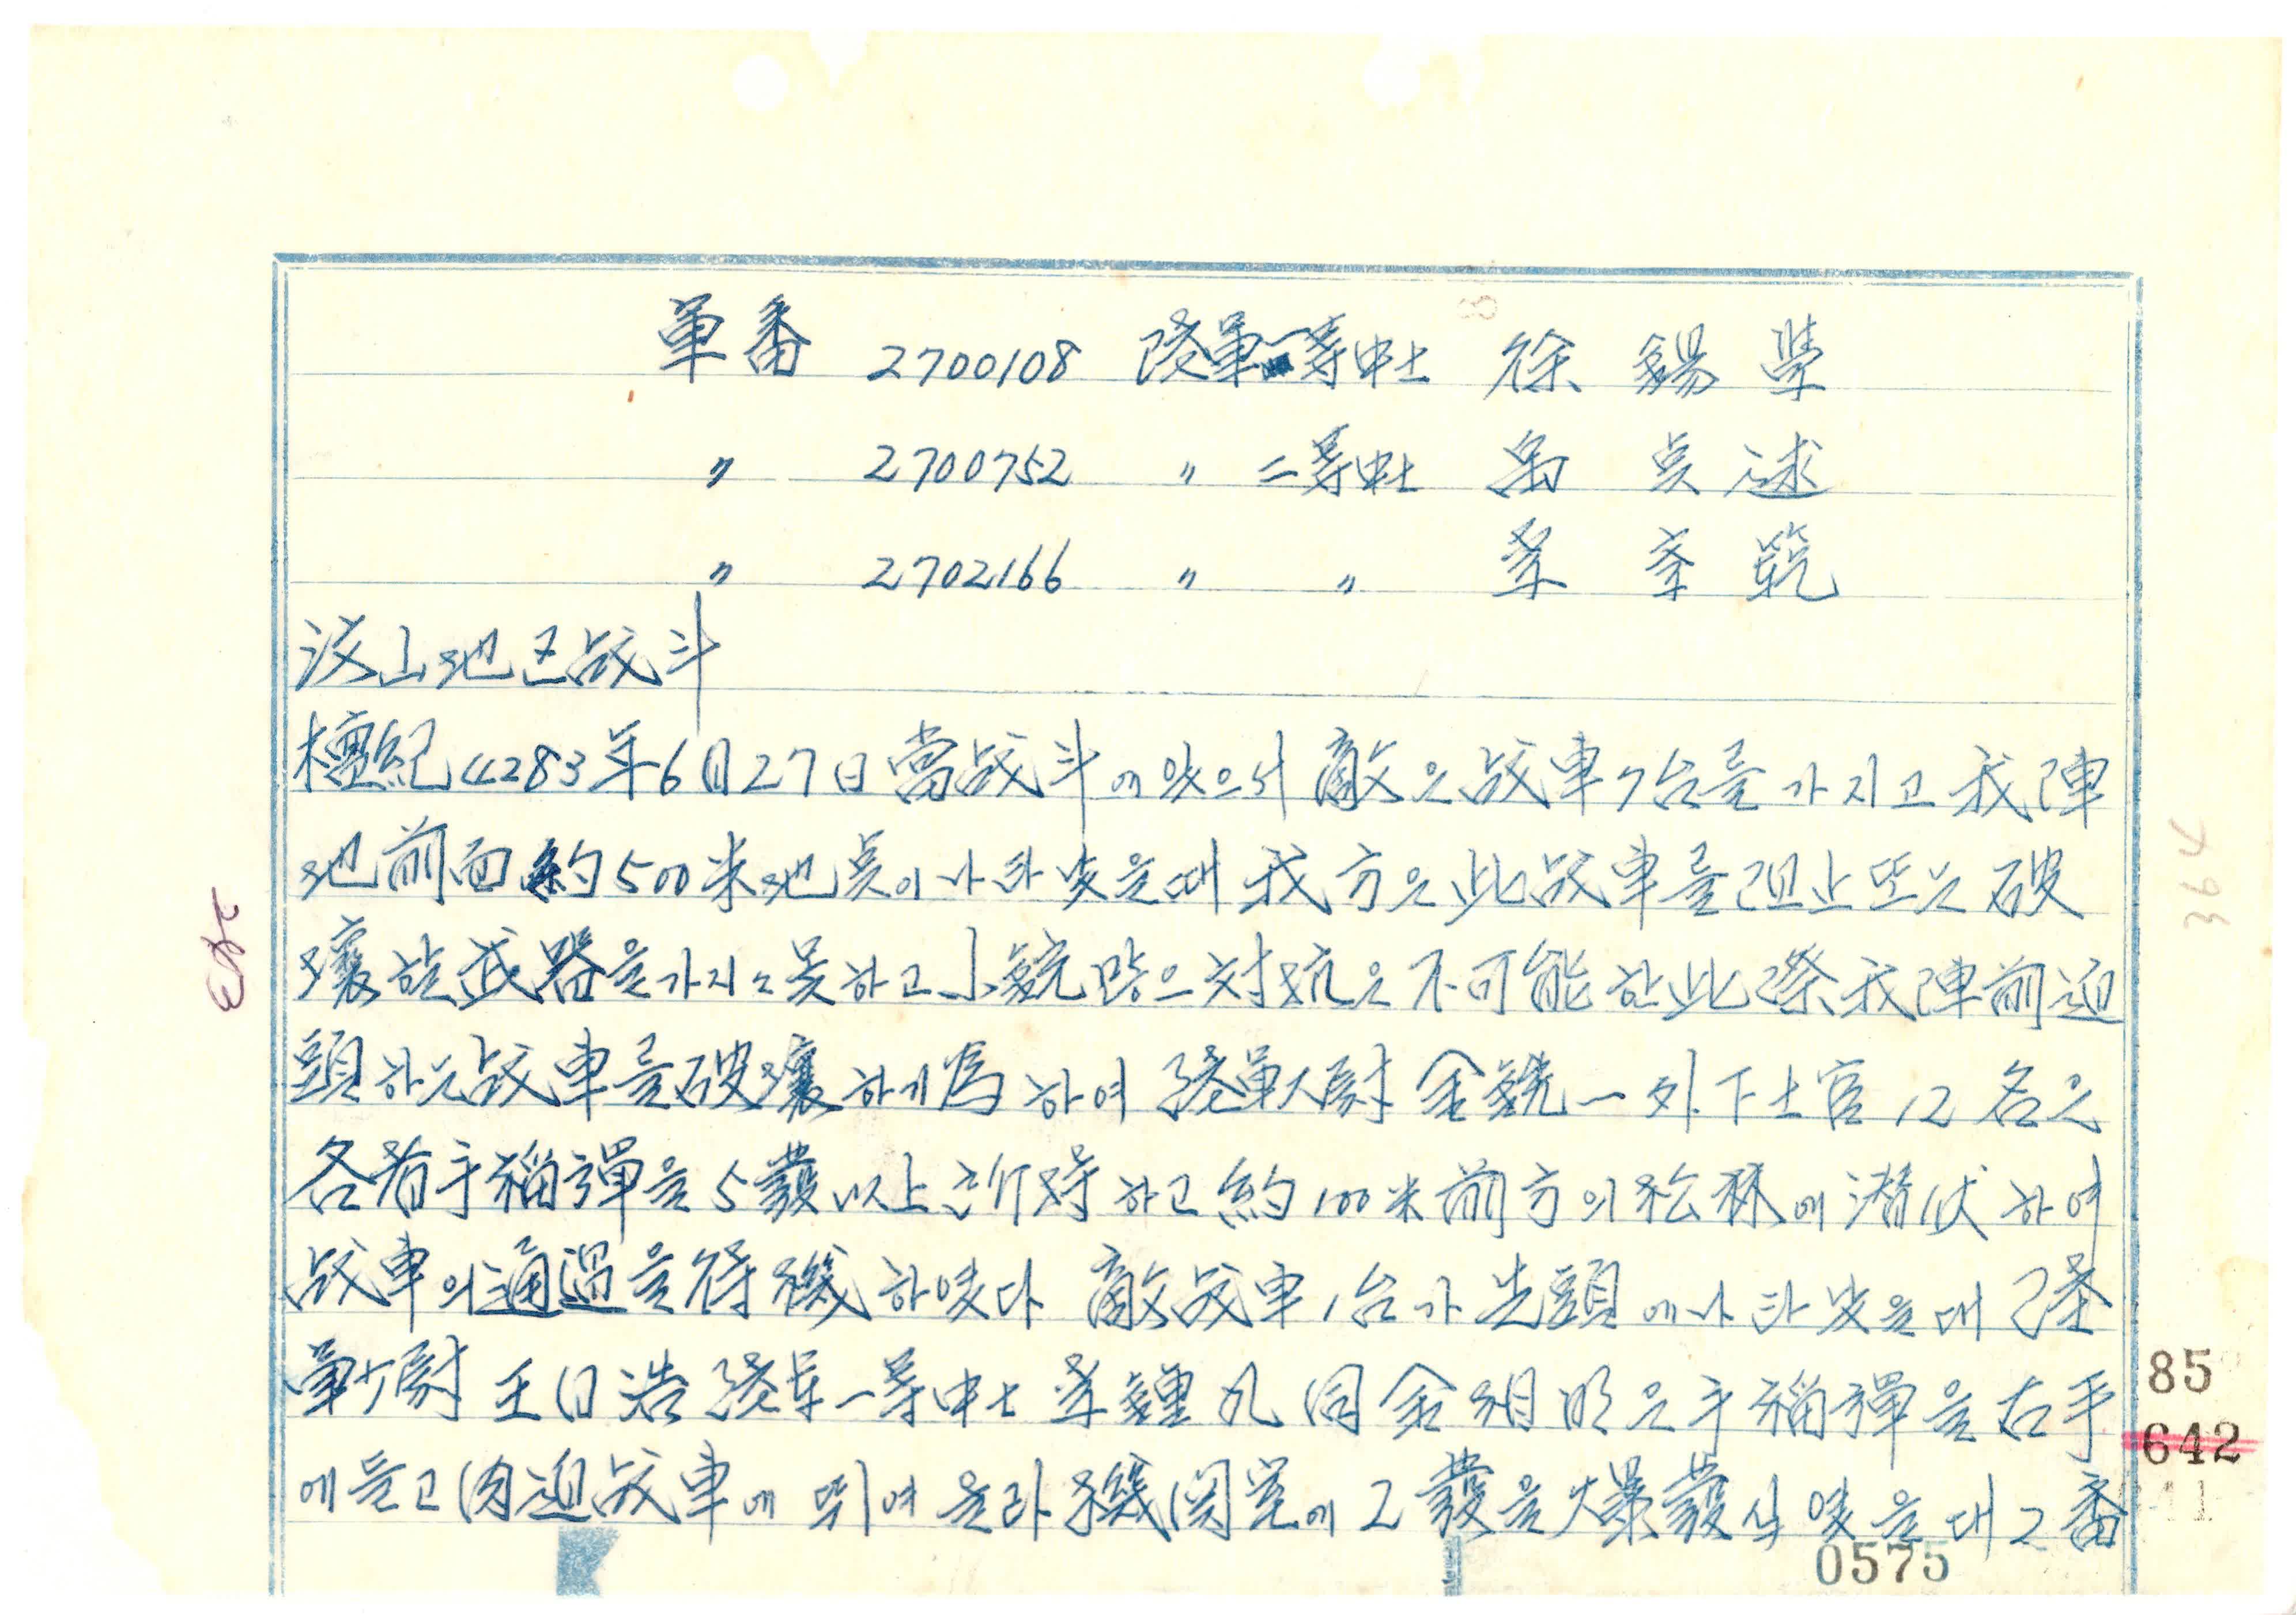 軍番 2700108 陸軍一等中士 徐錫學
〃 2700752 〃 二等中士 述
〃 2702166 〃 〃 李
汶山地区战斗
檀紀4283年6月27日當战斗에있으서 敵은战車7台를가지고我陣
地前面約500米地点이나타낫을때 我方은此战車를阻止또는破
壞할武器을가지々못하고小銃만으対抗은不可能한此際我陣前迫
頭하는战車를破壞하게爲하여 陸軍大尉 金 一外下士官12名은
各者手榴彈을5發以上所持하고約100米前方의松林에潜伏하여
战車의通過을待機하엿다 敵战車1台가先頭에나타낫을때 陸
軍少尉 王日浩 陸軍一等中士 李鍾九 同 金相 은手榴彈을右手
에들고肉迫战車에뛰여올라機関室에2發을爆發식엿을때2番
293
493
85
642
11
0575